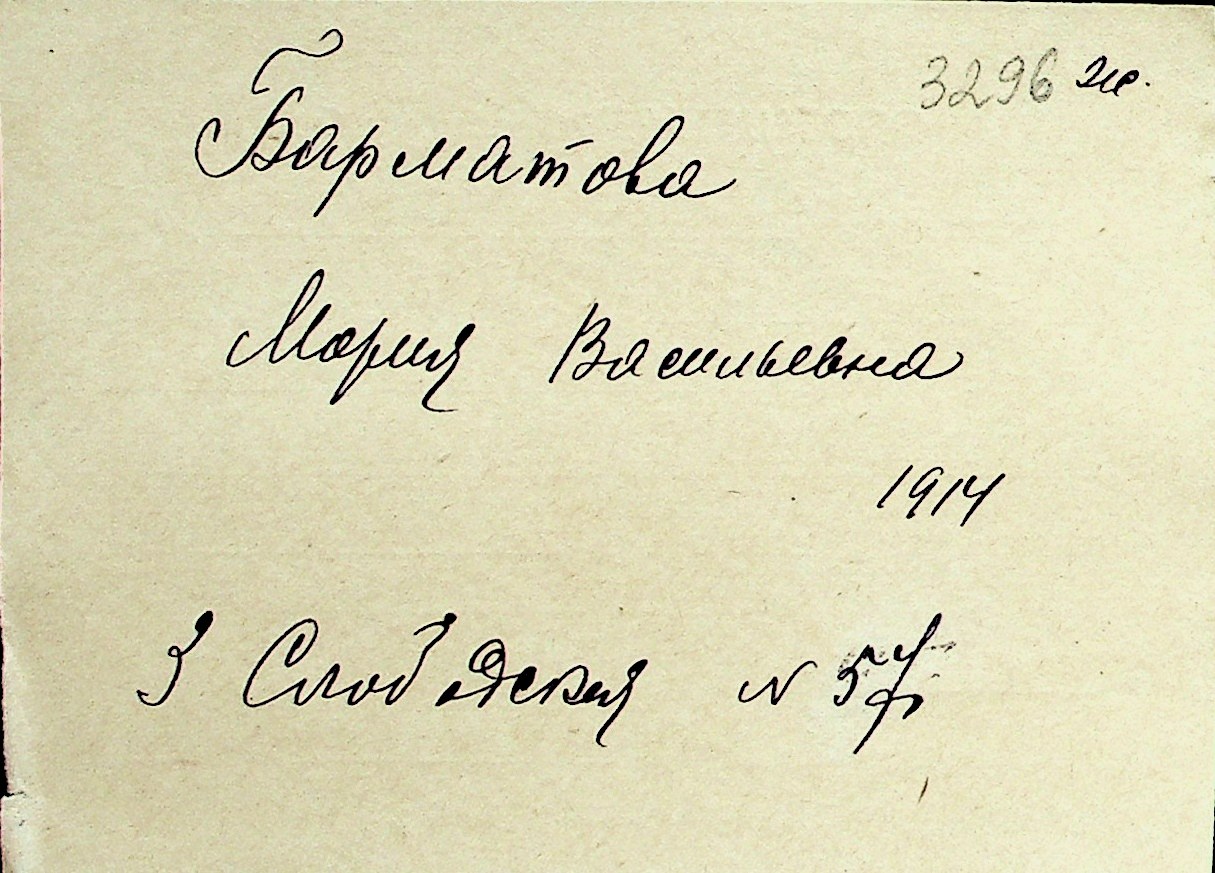 3296 ж.
Барматова
Мария Васильевна
1914
3 Слободская N